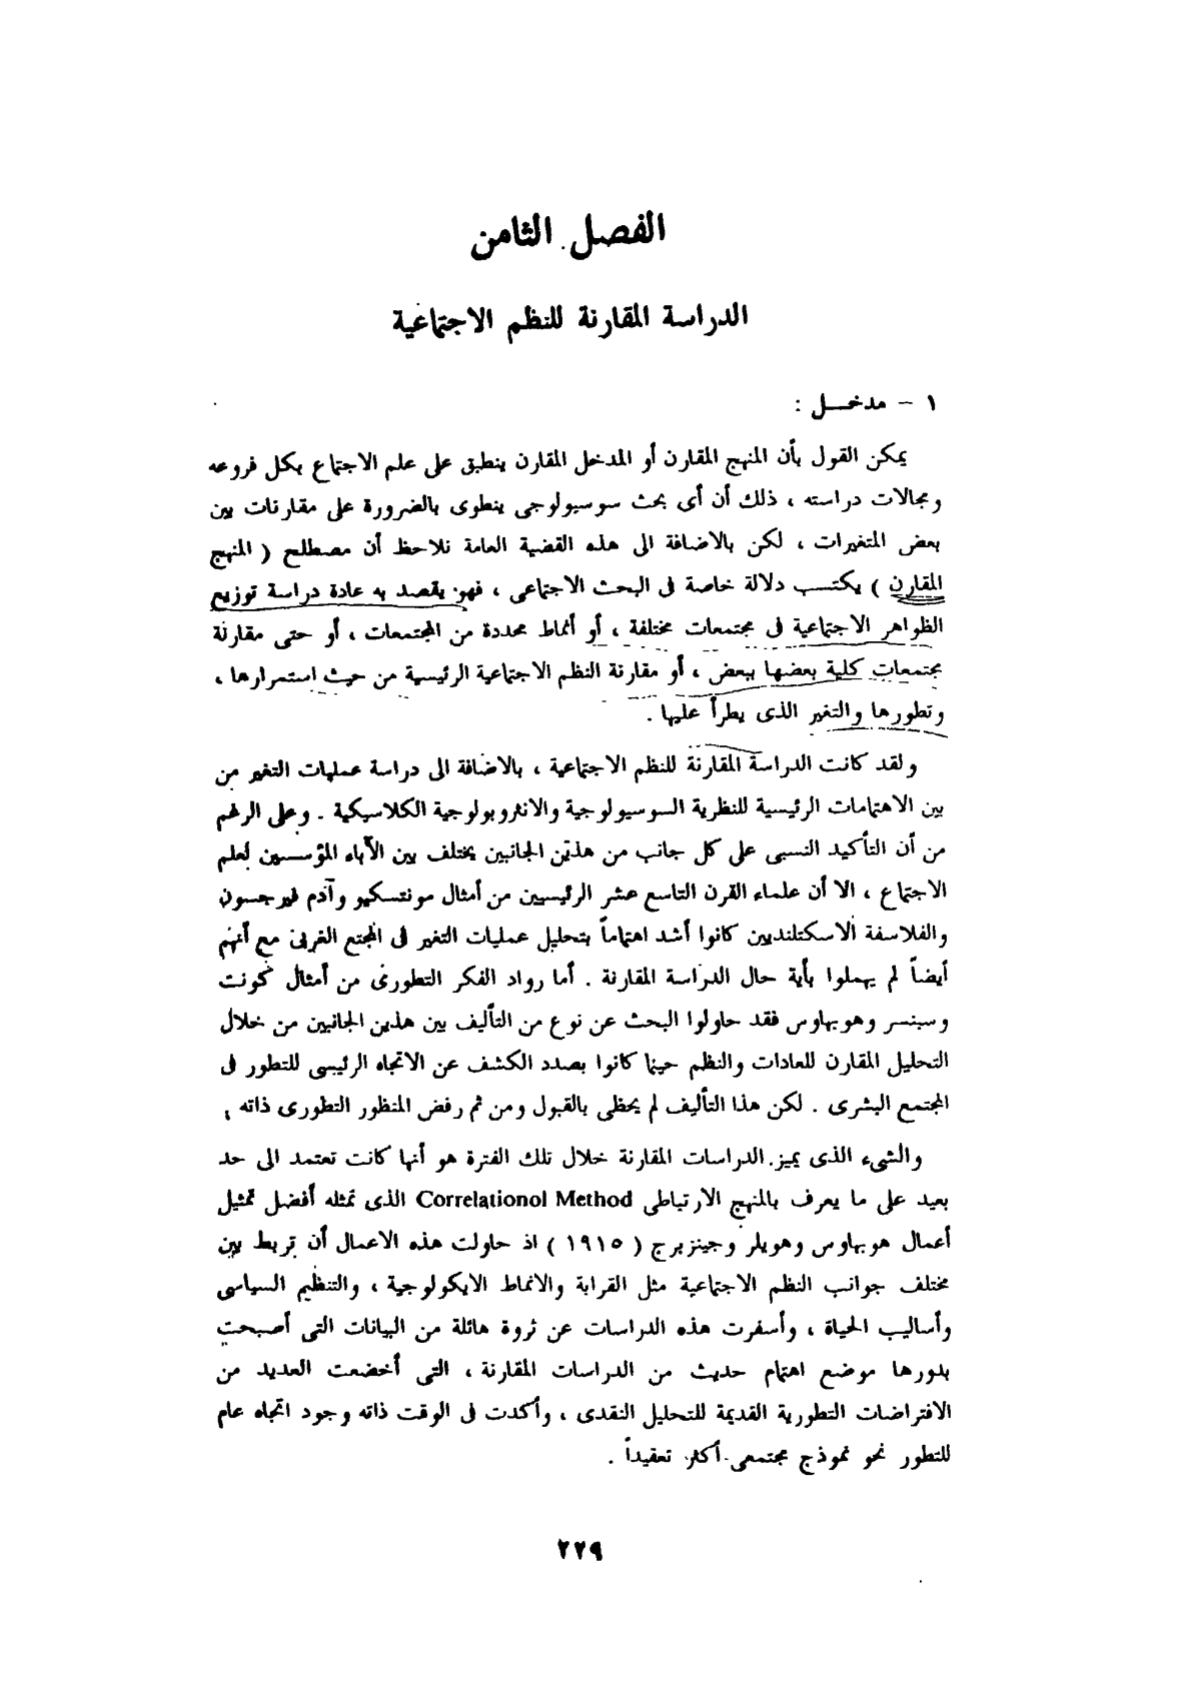 الفصل الثامن
الدراسة المقارنة للنظم الاجتماعية
١ – مدخــل :
يمكن القول بأن المنهج المقارن أو المدخل المقارن ينطبق على علم الاجتماع بكل فروعه
ومجالات دراسته ، ذلك أن أى بحث سوسيولوجى ينطوى بالضرورة على مقارنات بين
بعض المتغيرات ، لكن بالاضافة الى هذه القضية العامة نلاحظ أن مصطلح ( المنهج
المقارن ) يكتسب دلالة خاصة فى البحث الاجتماعى ، فهو يقصد به عادة دراسة توزيع
الظواهر الاجتماعية فى مجتمعات مختلفة ، أو أنماط محددة من المجتمعات ، أو حتى مقارنة
مجتمعات كلية بعضها ببعض ، أو مقارنة النظم الاجتماعية الرئيسية من حيث استمرارها ،
وتطورها والتغير الذى يطرأ عليها .
ولقد كانت الدراسة المقارنة للنظم الاجتماعية ، بالاضافة الى دراسة عمليات التغير من
بين الاهتمامات الرئيسية للنظرية السوسيولوجية والانثروبولوجية الكلاسيكية . وعلى الرغم
من أن التأكيد النسبى على كل جانب من هذين الجانبين يختلف بين الآباء المؤسسين لعلم
الاجتماع ، الا أن علماء القرن التاسع عشر الرئيسيين من أمثال مونتسكيو وآدم فيرجسون
والفلاسفة الاسكتلنديين كانوا أشد اهتماماً بتحليل عمليات التغير فى المجتمع الغربى مع أنهم
أيضاً لم يهملوا بأية حال الدراسة المقارنة . أما رواد الفكر التطورى من أمثال كونت
وسبنسر وهوبهاوس فقد حاولوا البحث عن نوع من التأليف بين هذين الجانبين من خلال
التحليل المقارن للعادات والنظم حينما كانوا بصدد الكشف عن الاتجاه الرئيسى للتطور فى
المجتمع البشرى . لكن هذا التأليف لم يحظى بالقبول ومن ثم رفض المنظور التطورى ذاته ,
والشىء الذى يميز الدراسات المقارنة خلال تلك الفترة هو أنها كانت تعتمد الى حد
بعيد على ما يعرف بالمنهج الارتباطى Correlationol Method الذى تمثله أفضل تمثيل
أعمال هوبهاوس وهويلر وجينزبرج ( ١٩١٥ ) اذ حاولت هذه الاعمال أن تربط بين
مختلف جوانب النظم الاجتماعية مثل القرابة والانماط الايكولوجية ، والتنظيم السياسى
وأساليب الحياة ، وأسفرت هذه الدراسات عن ثروة هائلة من البيانات التى أصبحت
بدورها موضع اهتمام حديث من الدراسات المقارنة ، التى أخضعت العديد من
الافتراضات التطورية القديمة للتحليل النقدى ، وأكدت فى الوقت ذاته وجود اتجاه عام
للتطور نحو نموذج مجتمعى أكثر تعقيداً .
٢٢٩